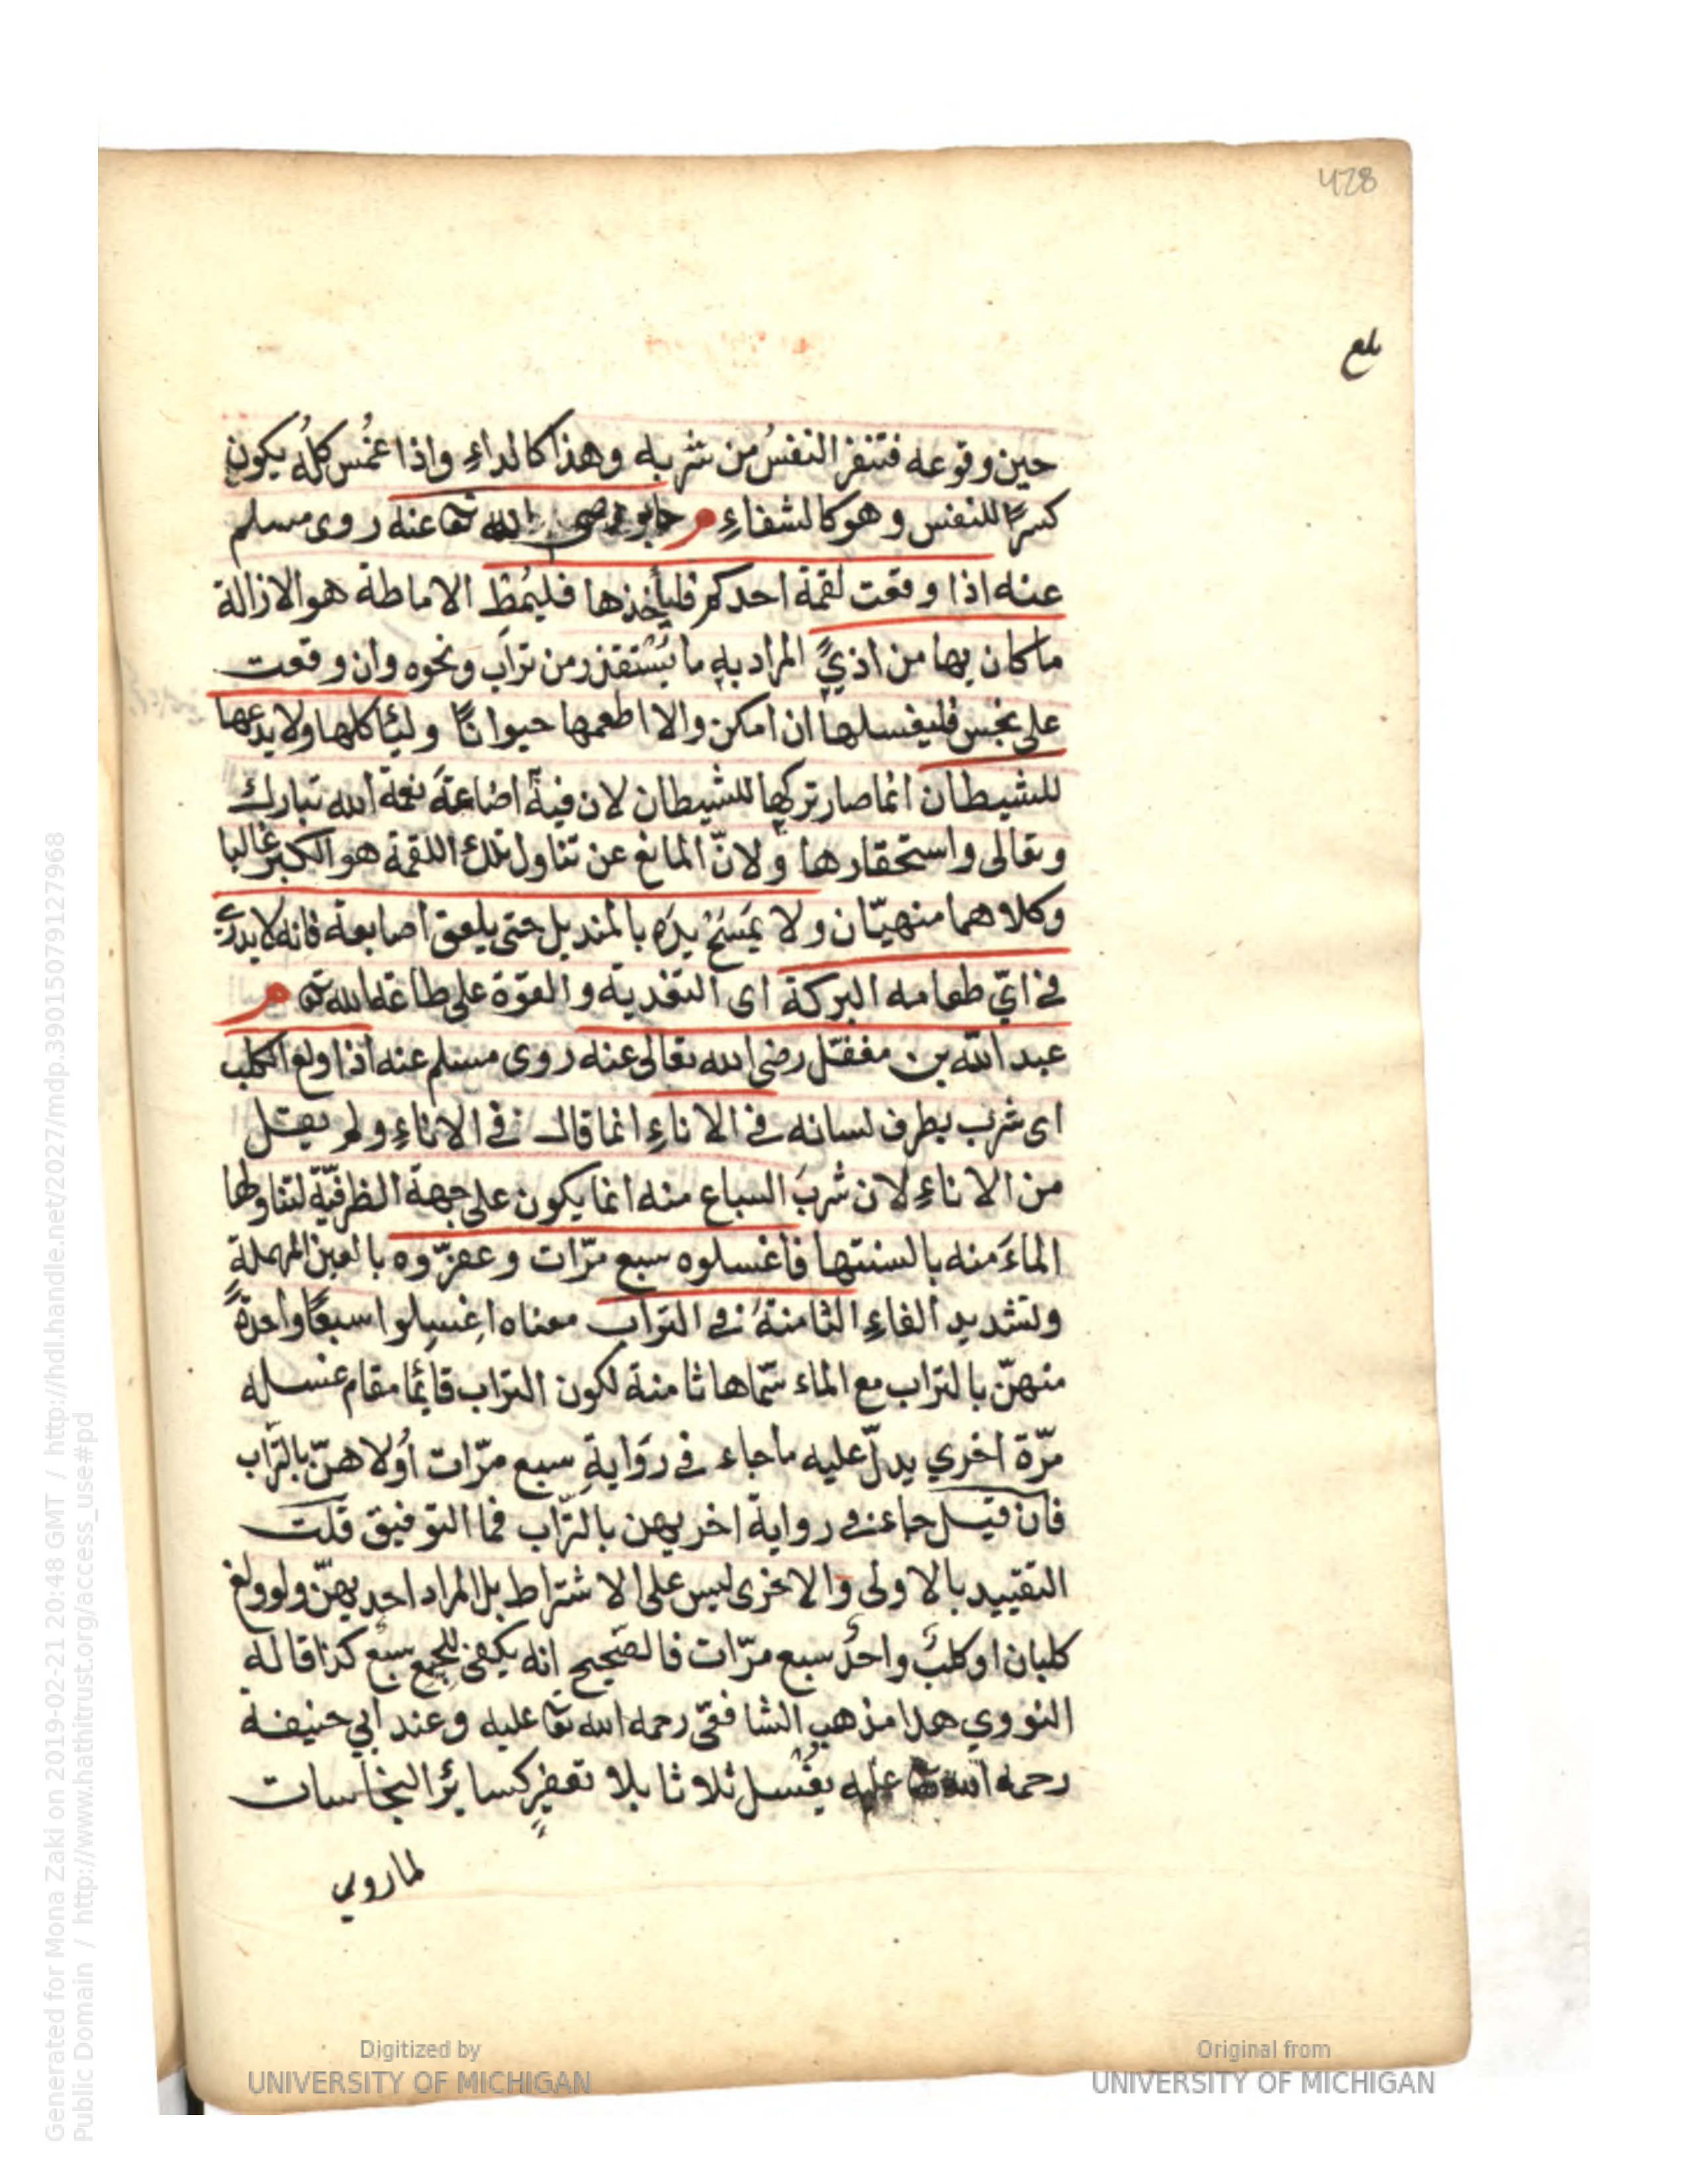 428
بلغ
حين وقوعه فتنفر النفسُ من شربه وهذا كالداءِ واذا غُمس كلُه يكون
كسرًا للنفس وهو كالشفاءِ م جابر رضى الله تعا عنه روى مسلم
عنه اذا وقعت لقمة احدكم فليأخذها فليُمِط الاماطة هو الازالة
ما كان بها من اذيً المراد به ما يُستقذر من تراب ونحوه وان وقعت
على نجس فليغسلها ان امكن والا اطعمها حيوانًا وليأكلها ولا يدعها
للشيطان انما صار تركها للشيطان لان فيه اضاعةَ نعمة الله تبارك
وتعالى واستحقارها ولانّ المانع عن تناول تلك اللقمة هو الكبر غالبا
وكلاهما منهيّان ولا يَمسَحْ يدَه بالمنديل حتى يلعق اصابعه فانه لا يدري
في ايّ طعامه البركة اى التغذية والقوّة على طاعة الله تعا م
عبد الله بن مغفّل رضى الله تعالى عنه روى مسلم عنه اذا ولغ الكلب
اى شرب بطرف لسانه في الاناءِ انما قال في الاناءِ ولم يقل
من الاناءِ لان شربَ السباع منه انما يكون على جهة الظرفيّة لتناولها
الماءَ منه بالسنتها فاغسلوه سبع مرّات وعفّروه بالعين المهملة
وتشديد الفاءِ الثامنةَ في التراب معناه اغسِلوا سبعًا واحدةً
منهنّ بالتراب مع الماء سمّاها ثامنة لكون التراب قائمًا مقام غسله
مرّة اخرى يدلّ عليه ما جاء في رواية سبع مرّات اُولاهنّ بالتراب
فان قيل جاء في رواية اخريهن بالتراب فما التوفيق قلت
التقييد بالاولى والاخرى ليس على الاشتراط بل المراد احديهنّ ولو ولغ
كلبان او كلبٌ واحدٌ سبع مرّات فالصحيح انه يكفى للجمع سبع كذا قاله
النووي هذا مذهب الشافعّى رحمه الله تعا عليه وعند ابي حنيفة
رحمه الله تعا عليه يغُسل ثلاثا بلا تعفيرٍ كسائر النجاسات
لما روي
Digitized by
UNIVERSITY OF MICHIGAN
Original from
UNIVERSITY OF MICHIGAN
Generated for Mona Zaki on 2019-02-21 20:48 GMT / http://hdl.handle.net/2027/mdp.39015079127968
Public Domain / http://www.hathitrust.org/access_use#pd